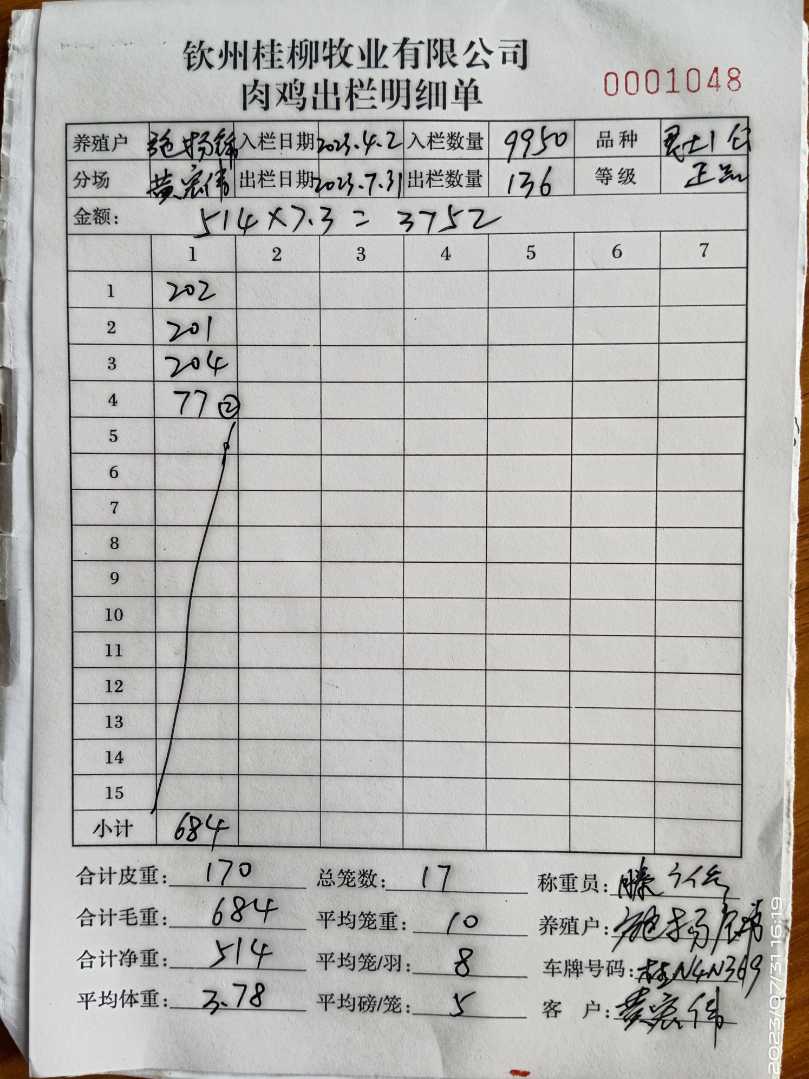 钦州桂柳牧业有限公司
肉鸡出栏明细单
0001048
养殖户 施扬锦 入栏日期 2023.4.2 入栏数量 9950 品种
分场 黄宏伟 出栏日期 2023.7.31 出栏数量 136 等级 正品
金额: 514×7.3=3752
1 2 3 4 5 6 7
1 202
2 201
3 204
4 77 ②
5
6
7
8
9
10
11
12
13
14
15
小计 684
合计皮重: 170 总笼数: 17 称重员:
合计毛重: 684 平均笼重: 10 养殖户:
合计净重: 514 平均笼/羽: 8 车牌号码: 桂N4N369
平均体重: 3.78 平均磅/笼: 5 客户: 黄宏伟
2023/07/31 16:19